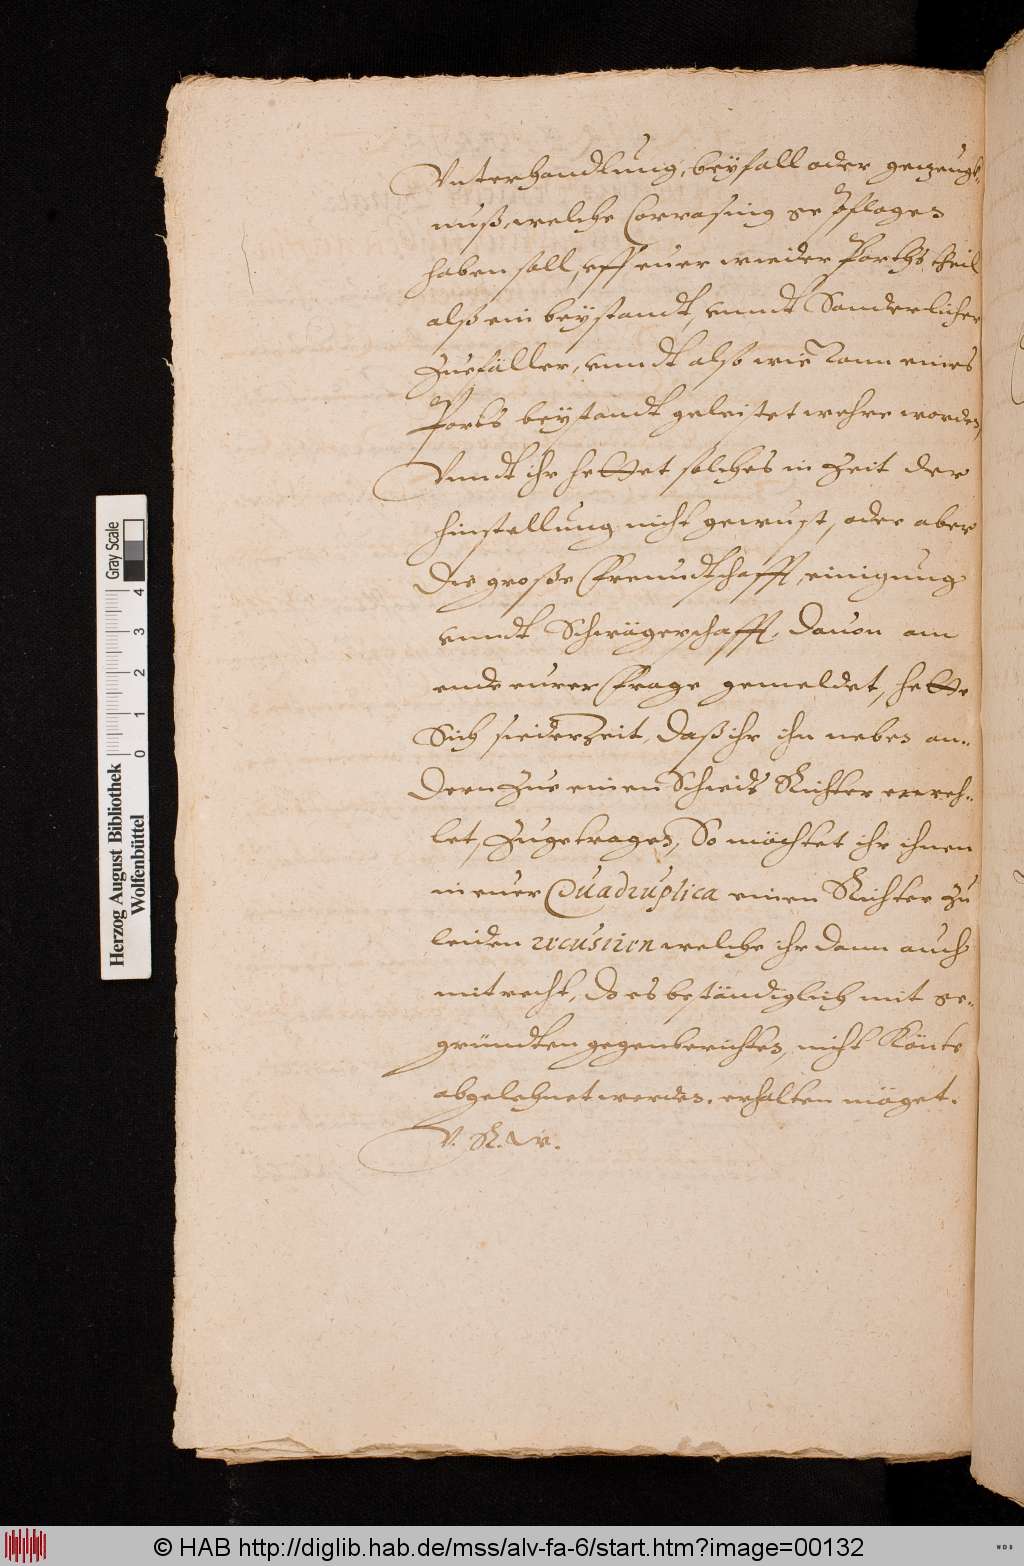 Vnterhandlung, beyfall oder gezeug-
nuß, welche Corrasing gepflogen
haben soll, vff euer wieder Parths theil
alß ein beystandt, vnndt Sonderlicher
Zuefäller, vnndt also wie dann eines
Parts beystandt geleistet wehre worden,
Vnndt ihr hettet solches in Zeit der
hinstellung nicht gewust, oder aber
Die große Freundtschafft, einigung
vnndt Schwägerschafft, dauon am
ende eurer Frage gemeldet, hette
Sich sieder Zeit, daß ihr ihn neben an-
dern Zue einen Schieds Richter erweh-
let, Zugetragen, So möchtet ihr ihnen
in euer Quadruplica einen Richter zu
leiden recusiren welche ihr dann auch
mit recht, do es beständiglich mit ge-
gründten gegenberichten, nicht Könte
abgelehnet werden, erhalten möget.
V. R. W.
Herzog August Bibliothek
Wolfenbüttel
0 1 2 3 4
Gray Scale
© HAB http://diglib.hab.de/mss/alv-fa-6/start.htm?image=00132
WDB